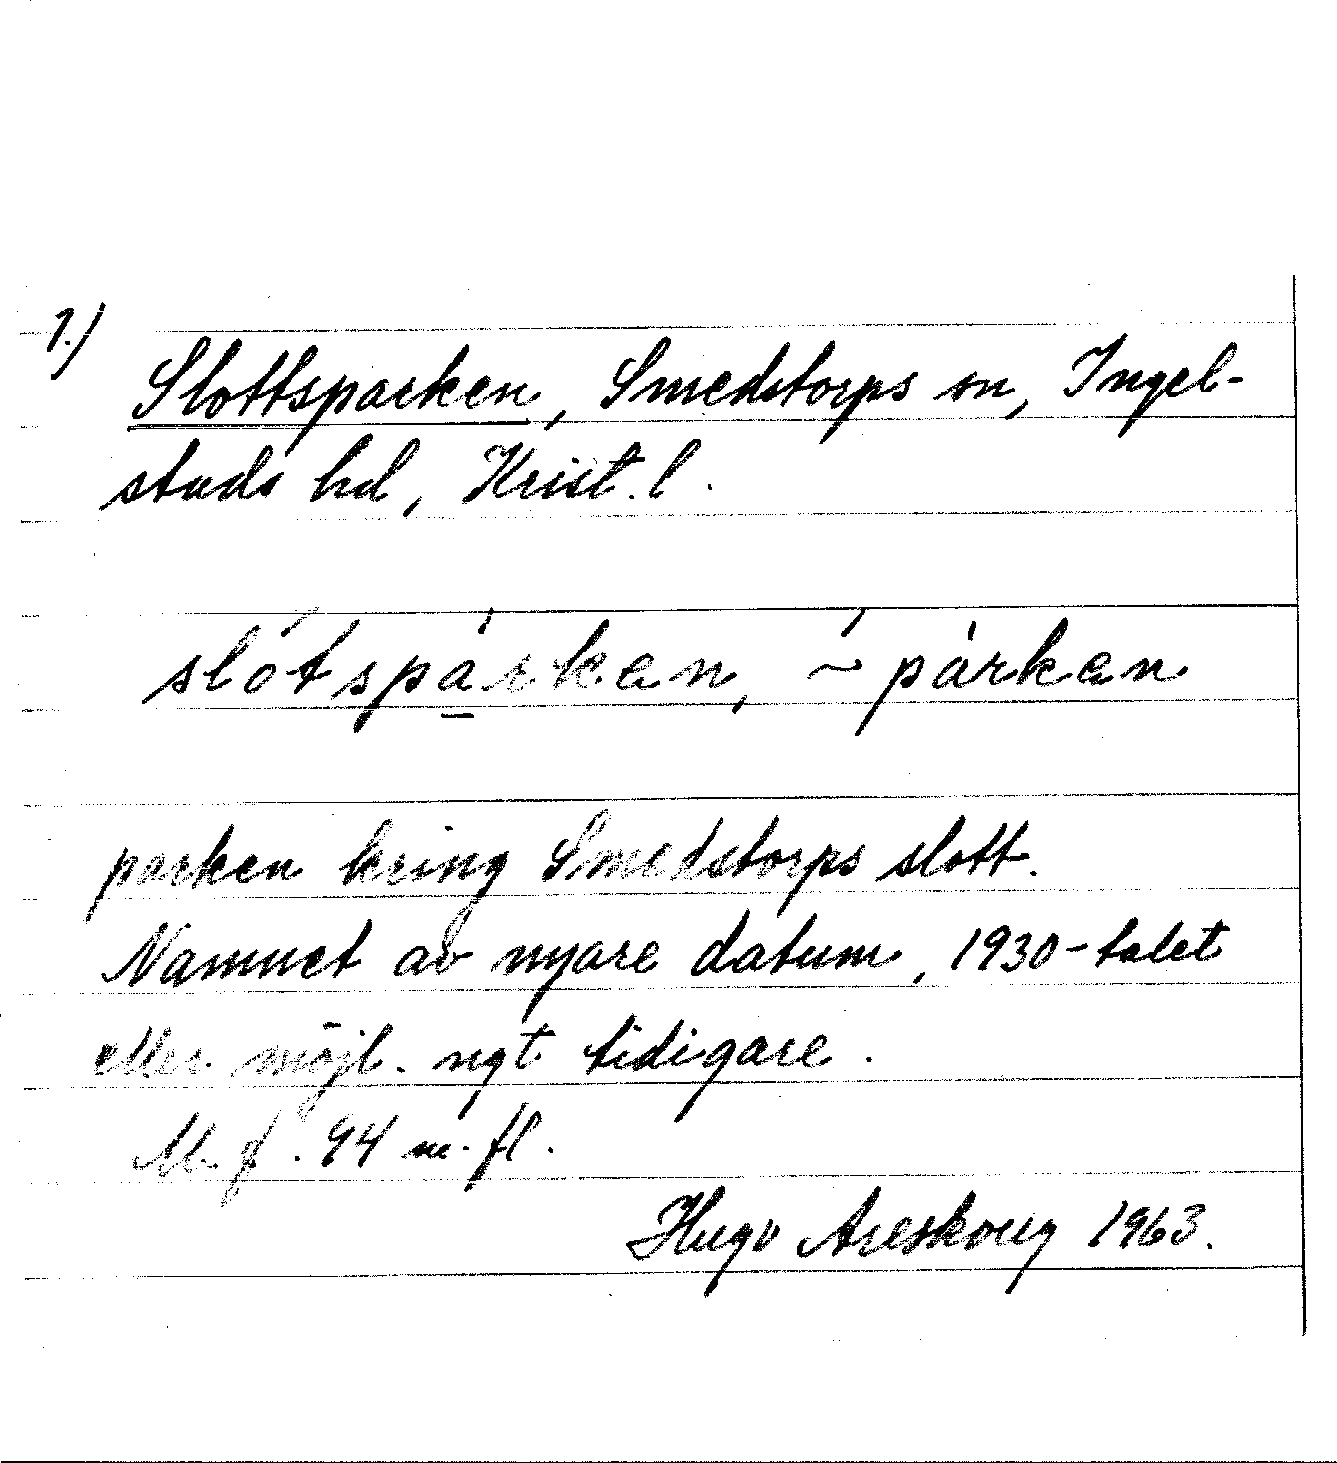 1.)
Slottsparken, Smedstorps sn, Ingel-
stads hd, Krist. l.
slótspárkan, ~́ pàrkan
parken kring Smedstorps slott.
Namnet av nyare datum, 1930-talet
eller möjl. ngt tidigare.
M. f. 94 m. fl.
Hugo Areskoug 1963.